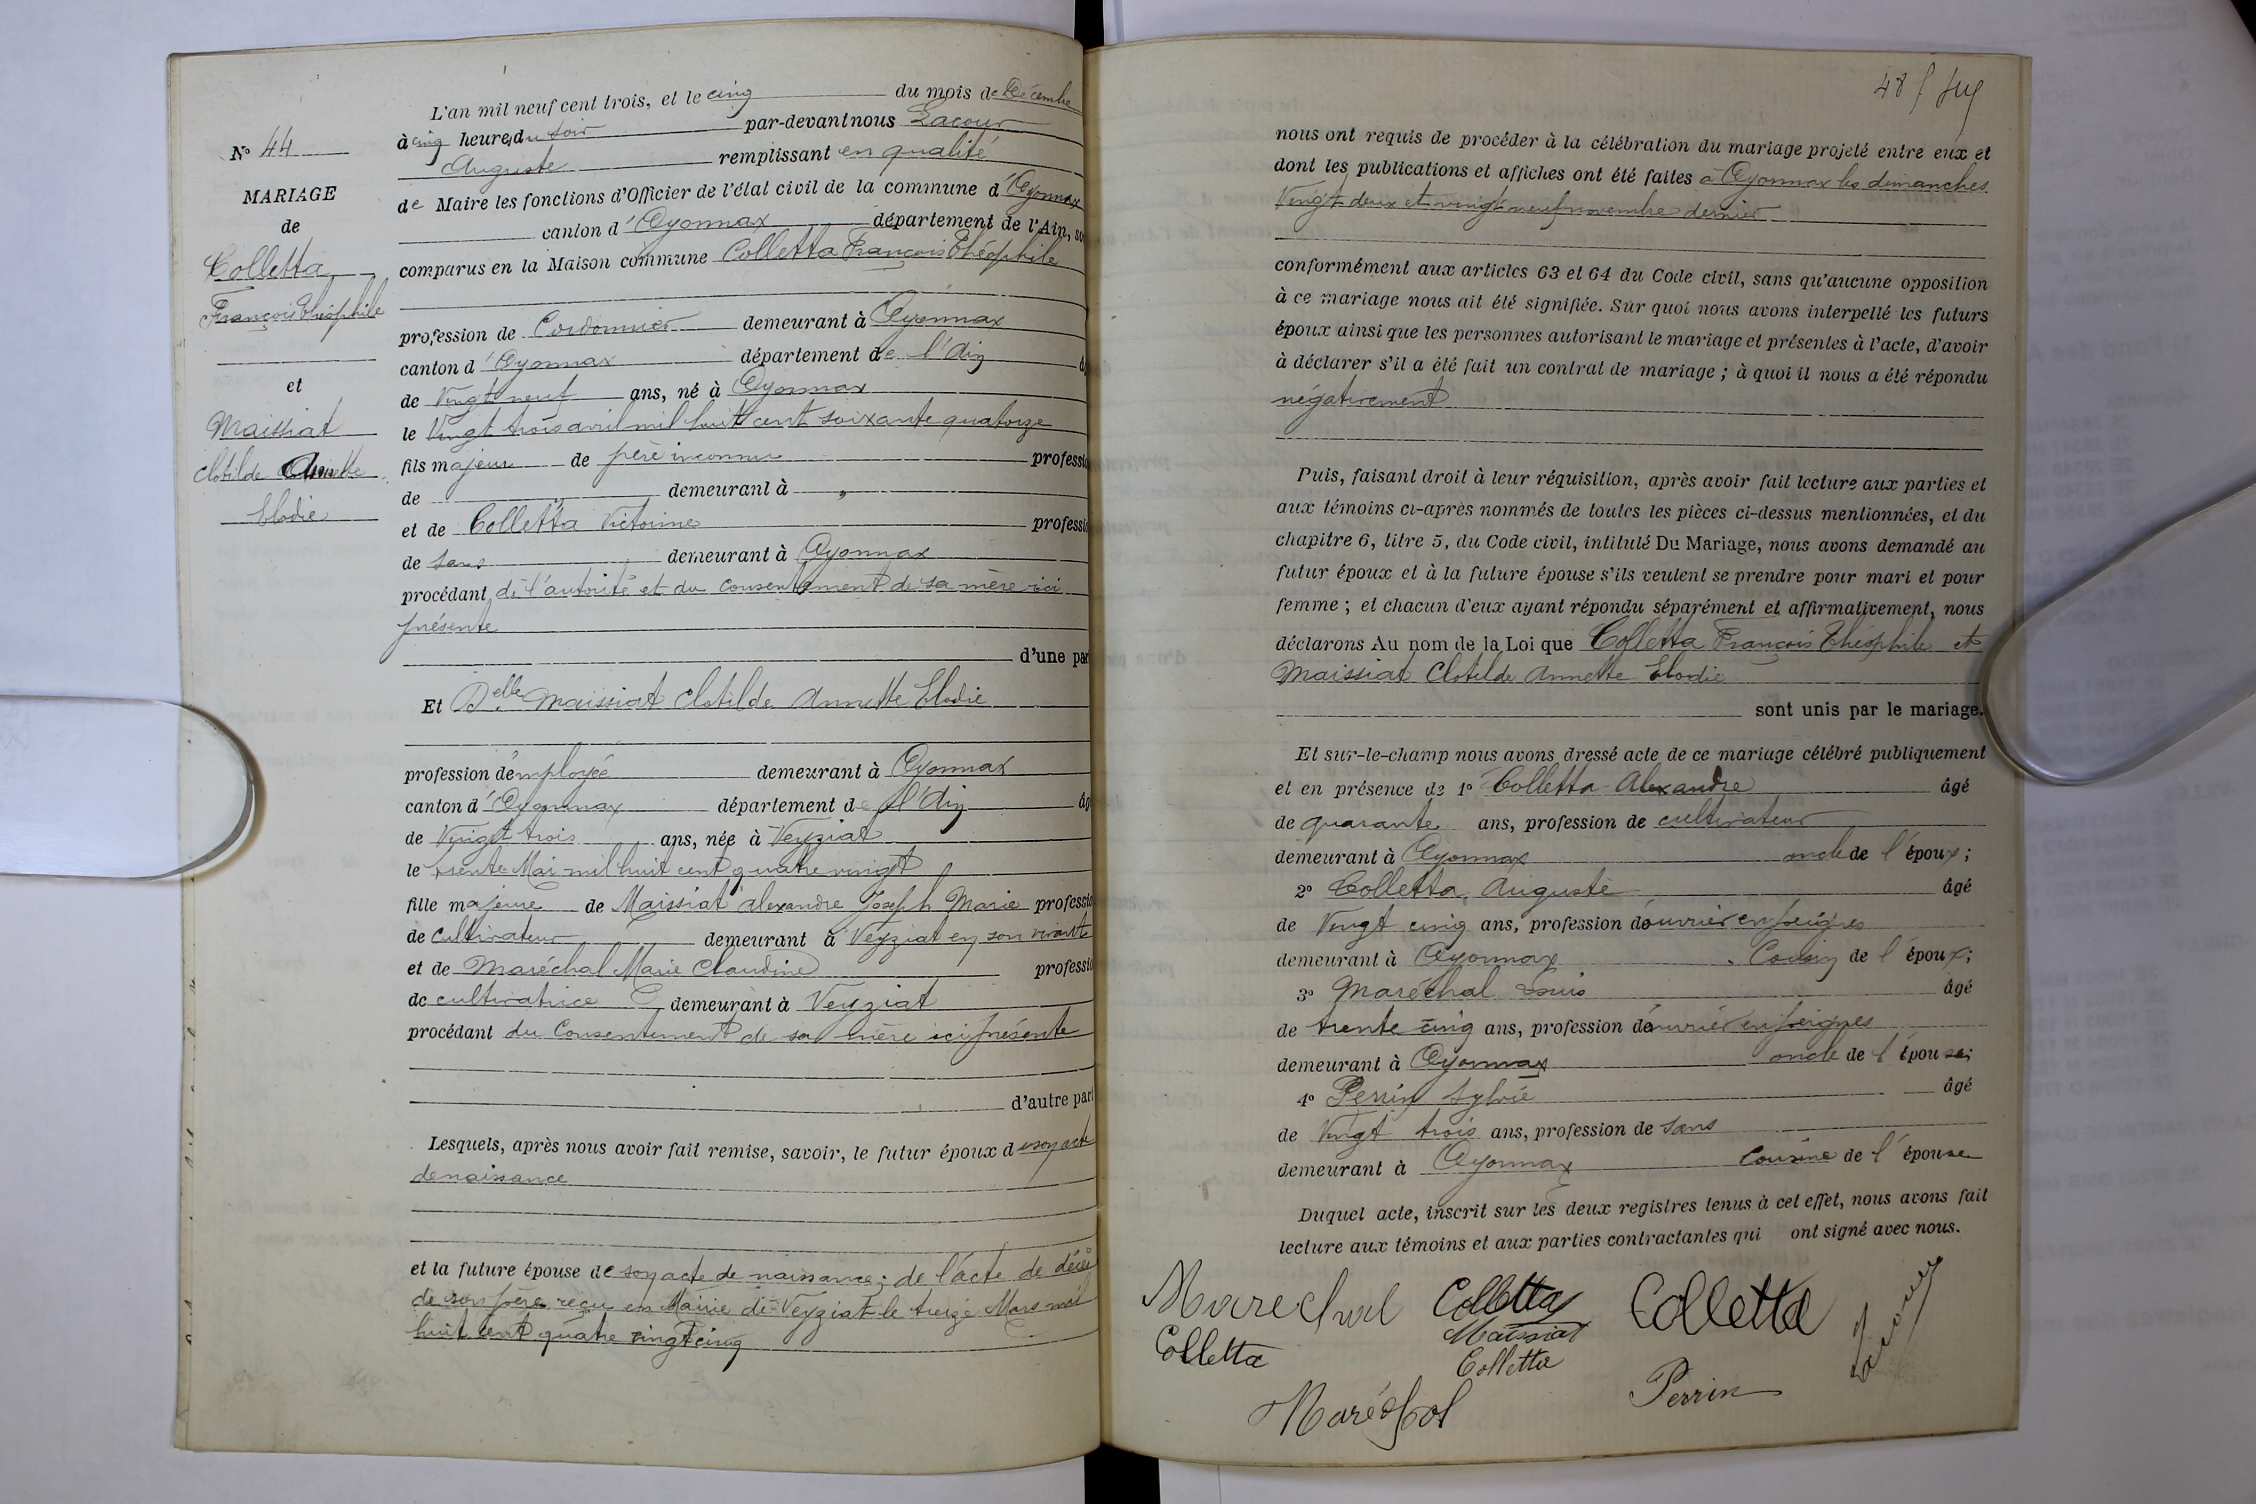 L'an mil neuf cent trois, et le cinq du mois de Décembre
à cinq heures du soir par-devant nous Lacour
Auguste remplissant en qualité
de Maire les fonctions d'Officier de l'état civil de la commune d'Oyonnax
canton d'Oyonnax département de l'Ain, so
comparus en la Maison commune Colletta François Théophile
profession de Cordonnier demeurant à Oyonnax
canton d'Oyonnax département de l'Ain â
de Vingt neuf ans, né à Oyonnax
le Vingt trois avril mil huit cent soixante quatorze
fils majeur de père inconnu professio
de demeurant à "
et de Colletta Victorine professio
de sans demeurant à Oyonnax
procédant de l'autorité et du consentement de sa mère ici
présente
d'une par
Et Delle Maissiat Clotilde Annette Elodie
profession d'employée demeurant à Oyonnax
canton d'Oyonnax département de l'Ain âg
de Vingt trois ans, née à Veyziat
le trente Mai mil huit cent quatre vingt
fille majeure de Maissiat Alexandre Joseph Marie professio
de Cultivateur demeurant à Veyziat en son vivant
et de Maréchal Marie Claudine professio
de cultivatrice demeurant à Veyziat
procédant du Consentement de sa mère ici présente
d'autre part
Lesquels, après nous avoir fait remise, savoir, le futur époux de son acte
de naissance
et la future épouse de son acte de naissance; de l'acte de décès
de son père reçu en Mairie de Veyziat le treize Mars mil
huit cent quatre vingt cinq
No 44
MARIAGE
de
Colletta
François Théophile
et
Maissiat
Clotilde Annette
Elodie
48
nous ont requis de procéder à la célébration du mariage projeté entre eux et
dont les publications et affiches ont été faites à Oyonnax les dimanches
Vingt deux et vingt neuf novembre dernier
conformément aux articles 63 et 64 du Code civil, sans qu'aucune opposition
à ce mariage nous ait été signifiée. Sur quoi nous avons interpellé les futurs
époux ainsi que les personnes autorisant le mariage et présentes à l'acte, d'avoir
à déclarer s'il a été fait un contrat de mariage; à quoi il nous a été répondu
négativement
Puis, faisant droit à leur réquisition, après avoir fait lecture aux parties et
aux témoins ci-après nommés de toutes les pièces ci-dessus mentionnées, et du
chapitre 6, titre 5, du Code civil, intitulé Du Mariage, nous avons demandé au
futur époux et à la future épouse s'ils veulent se prendre pour mari et pour
femme; et chacun d'eux ayant répondu séparément et affirmativement, nous
déclarons Au nom de la Loi que Colletta François Théophile et
Maissiat Clotilde Annette Elodie
sont unis par le mariage.
Et sur-le-champ nous avons dressé acte de ce mariage célébré publiquement
et en présence de 1o Colletta Alexandre âgé
de quarante ans, profession de cultivateur
demeurant à Oyonnax oncle de l'époux;
2o Colletta Auguste âgé
de Vingt cinq ans, profession d'ouvrier en peignes
demeurant à Oyonnax Cousin de l'époux;
3o Maréchal Louis âgé
de trente cinq ans, profession d'ouvrier en peignes
demeurant à Oyonnax oncle de l'épouse;
4o Perrin Sylvie âgé
de Vingt trois ans, profession de sans
demeurant à Oyonnax Cousine de l'épouse
Duquel acte, inscrit sur les deux registres tenus à cet effet, nous avons fait
lecture aux témoins et aux parties contractantes qui ont signé avec nous.
Marechal Colletta Colletta Lacour
Maissiat
Colletta Colletta
Perrin
Maréchal